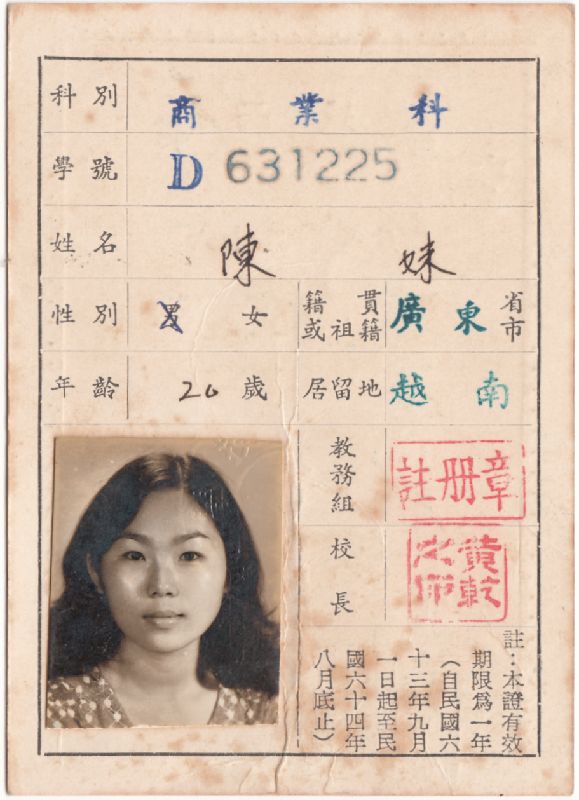 科別 商業科
學號 D 631225
姓名 陳妹
性別 男 女 籍貫或祖籍 廣東 省市
年齡 20歲 居留地 越南
教務組 註册章
校長
註：本證有效
期限爲一年
（自民國六
十三年九月
一日起至民
國六十四年
八月底止）